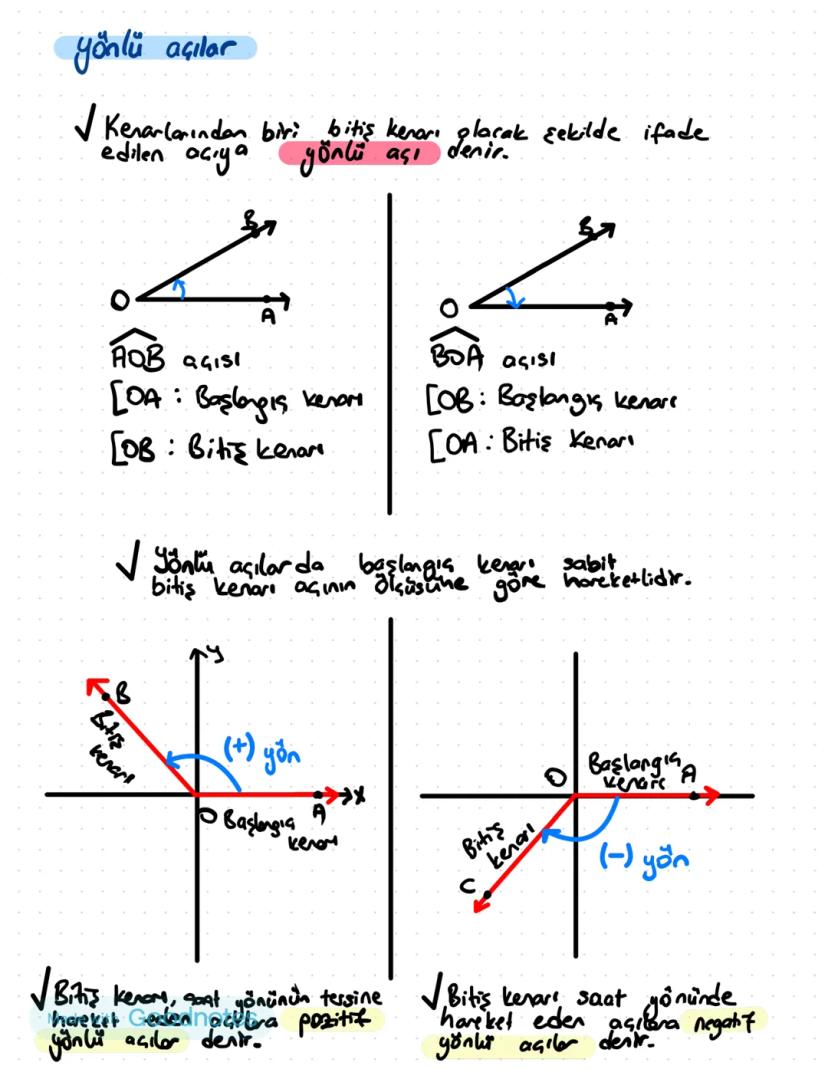 yönlü açılar
√ Kenarlarından biri bitiş kenarı olacak şekilde ifade
edilen açıya yönlü açı denir.
B
O
A
AOB açısı
[OA : Başlangıç kenarı
[OB : Bitiş kenarı
B
O
A
BOA açısı
[OB : Başlangıç kenarı
[OA : Bitiş kenarı
√ Yönlü açılarda başlangıç kenarı sabit
bitiş kenarı açının ölçüsüne göre hareketlidir.
y
B
Bitiş
kenarı
(+) yön
O
A
x
Başlangıç
kenarı
O
Başlangıç
kenarı
A
Bitiş
kenarı
C
(-) yön
√ Bitiş kenarı, saat yönünün tersine
hareket eden açılara pozitif
yönlü açılar denir.
Goodnotes
√ Bitiş kenarı saat yönünde
hareket eden açılara negatif
yönlü açılar denir.